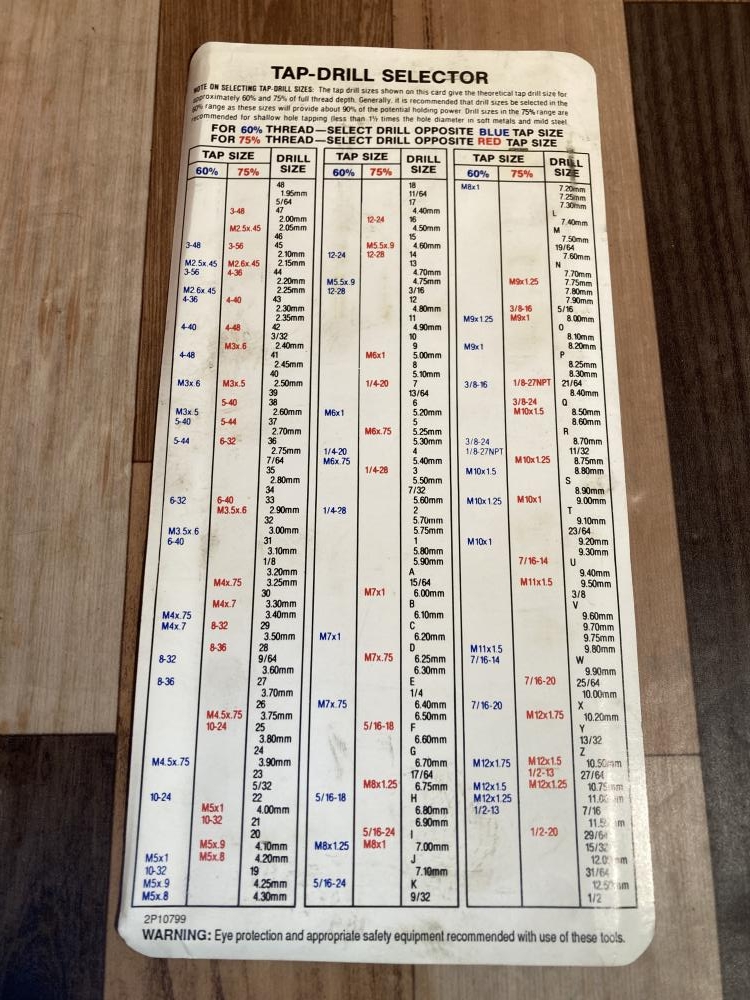 TAP-DRILL SELECTOR
NOTE ON SELECTING TAP-DRILL SIZES: The tap drill sizes shown on this card give the theoretical tap drill size for
approximately 60% and 75% of full thread depth. Generally, it is recommended that drill sizes be selected in the
60% range as these sizes will provide about 90% of the potential holding power. Drill sizes in the 75% range are
recommended for shallow hole tapping (less than 1½ times the hole diameter in soft metals and mild steel.
FOR 60% THREAD—SELECT DRILL OPPOSITE BLUE TAP SIZE
FOR 75% THREAD—SELECT DRILL OPPOSITE RED TAP SIZE
TAP SIZE DRILL SIZE
60% 75%
48
1.95mm
5/64
3-48 47
2.00mm
M2.5x.45 2.05mm
46
3-48 3-56 45
2.10mm
M2.5x.45 M2.6x.45 2.15mm
3-56 4-36 44
2.20mm
M2.6x.45 2.25mm
4-36 4-40 43
2.30mm
2.35mm
4-40 4-48 42
3/32
M3x.6 2.40mm
4-48 41
2.45mm
40
M3x.6 M3x.5 2.50mm
39
5-40 38
M3x.5 2.60mm
5-40 5-44 37
2.70mm
5-44 6-32 36
2.75mm
7/64
35
2.80mm
34
6-32 6-40 33
M3.5x.6 2.90mm
32
M3.5x.6 3.00mm
6-40 31
3.10mm
1/8
3.20mm
M4x.75 3.25mm
30
M4x.7 3.30mm
M4x.75 3.40mm
M4x.7 8-32 29
3.50mm
8-36 28
8-32 9/64
3.60mm
8-36 27
3.70mm
26
M4.5x.75 3.75mm
10-24 25
3.80mm
24
M4.5x.75 3.90mm
23
5/32
10-24 22
M5x1 4.00mm
10-32 21
20
M5x.9 4.10mm
M5x1 M5x.8 4.20mm
10-32 19
M5x.9 4.25mm
M5x.8 4.30mm
TAP SIZE DRILL SIZE
60% 75%
18
11/64
17
4.40mm
12-24 16
4.50mm
15
M5.5x.9 4.60mm
12-24 12-28 14
13
4.70mm
M5.5x.9 4.75mm
12-28 3/16
12
4.80mm
11
4.90mm
10
9
M6x1 5.00mm
8
5.10mm
1/4-20 7
13/64
6
M6x1 5.20mm
5
M6x.75 5.25mm
5.30mm
1/4-20 4
M6x.75 5.40mm
1/4-28 3
5.50mm
7/32
5.60mm
1/4-28 2
5.70mm
5.75mm
1
5.80mm
5.90mm
A
15/64
M7x1 6.00mm
B
6.10mm
C
M7x1 6.20mm
D
M7x.75 6.25mm
6.30mm
E
1/4
M7x.75 6.40mm
6.50mm
5/16-18 F
6.60mm
G
6.70mm
17/64
M8x1.25 6.75mm
5/16-18 H
6.80mm
6.90mm
5/16-24 I
M8x1.25 M8x1 7.00mm
J
7.10mm
5/16-24 K
9/32
TAP SIZE DRILL SIZE
60% 75%
M8x1 7.20mm
7.25mm
7.30mm
L
7.40mm
M
7.50mm
19/64
7.60mm
N
7.70mm
M9x1.25 7.75mm
7.80mm
7.90mm
3/8-16 5/16
M9x1.25 M9x1 8.00mm
O
8.10mm
M9x1 8.20mm
P
8.25mm
8.30mm
3/8-16 1/8-27NPT 21/64
8.40mm
3/8-24 Q
M10x1.5 8.50mm
8.60mm
R
3/8-24 8.70mm
1/8-27NPT 11/32
M10x1.25 8.75mm
M10x1.5 8.80mm
S
8.90mm
M10x1.25 M10x1 9.00mm
T
9.10mm
23/64
M10x1 9.20mm
9.30mm
7/16-14 U
9.40mm
M11x1.5 9.50mm
3/8
V
9.60mm
9.70mm
9.75mm
M11x1.5 9.80mm
7/16-14 W
9.90mm
7/16-20 25/64
10.00mm
7/16-20 X
M12x1.75 10.20mm
Y
13/32
Z
M12x1.75 M12x1.5 10.50mm
1/2-13 27/64
M12x1.5 M12x1.25 10.75mm
M12x1.25
1/2-13 7/16
1/2-20 29/64
15/32
31/64
1/2
2P10799
WARNING: Eye protection and appropriate safety equipment recommended with use of these tools.